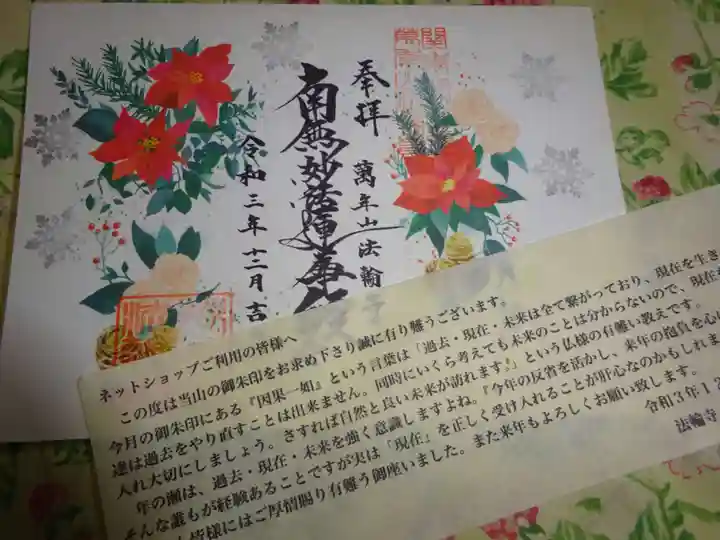 奉拝
萬年山法輪
南無妙法蓮華
令和三年十二月吉
ネットショップご利用の皆様へ
この度は当山の御朱印をお求め下さり誠に有り難うございます。
今月の御朱印にある『因果一如』という言葉は「過去・現在・未来は全て繋がっており、現在を生き
達は過去をやり直すことは出来ません。同時にいくら考えても未来のことは分からないので、現在を
入れ大切にしましょう。さすれば自然と良い未来が訪れます！」という仏様の有難い教えです。
年の瀬は、過去・現在・未来を強く意識しますよね。『今年の反省を活かし、来年の抱負を心に
そんな誰もが経験あることですが実は「現在」を正しく受け入れることが肝心なのかもしれま
皆様にはご厚情賜り有難う御座いました。また来年もよろしくお願い致します。
令和3年12
法輪寺